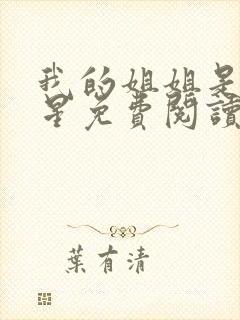 我的姐姐是
星免費閱讀
葉有清